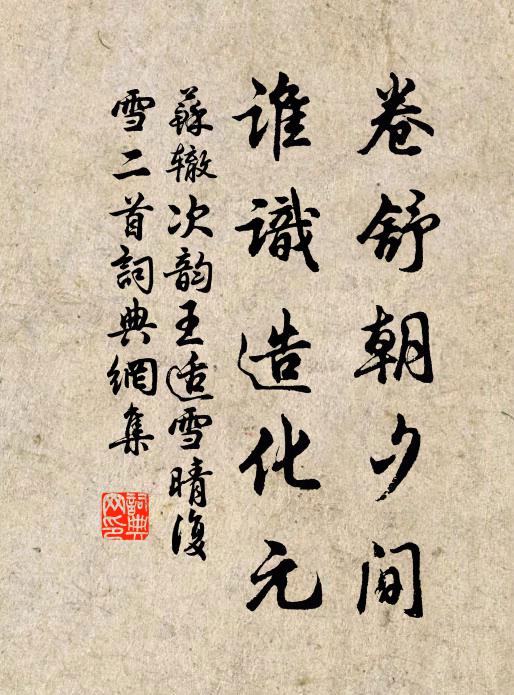 卷舒朝夕间
谁識造化元
蘇辙次韵王适雪晴復
雪二首詞典網集
詞典
网印